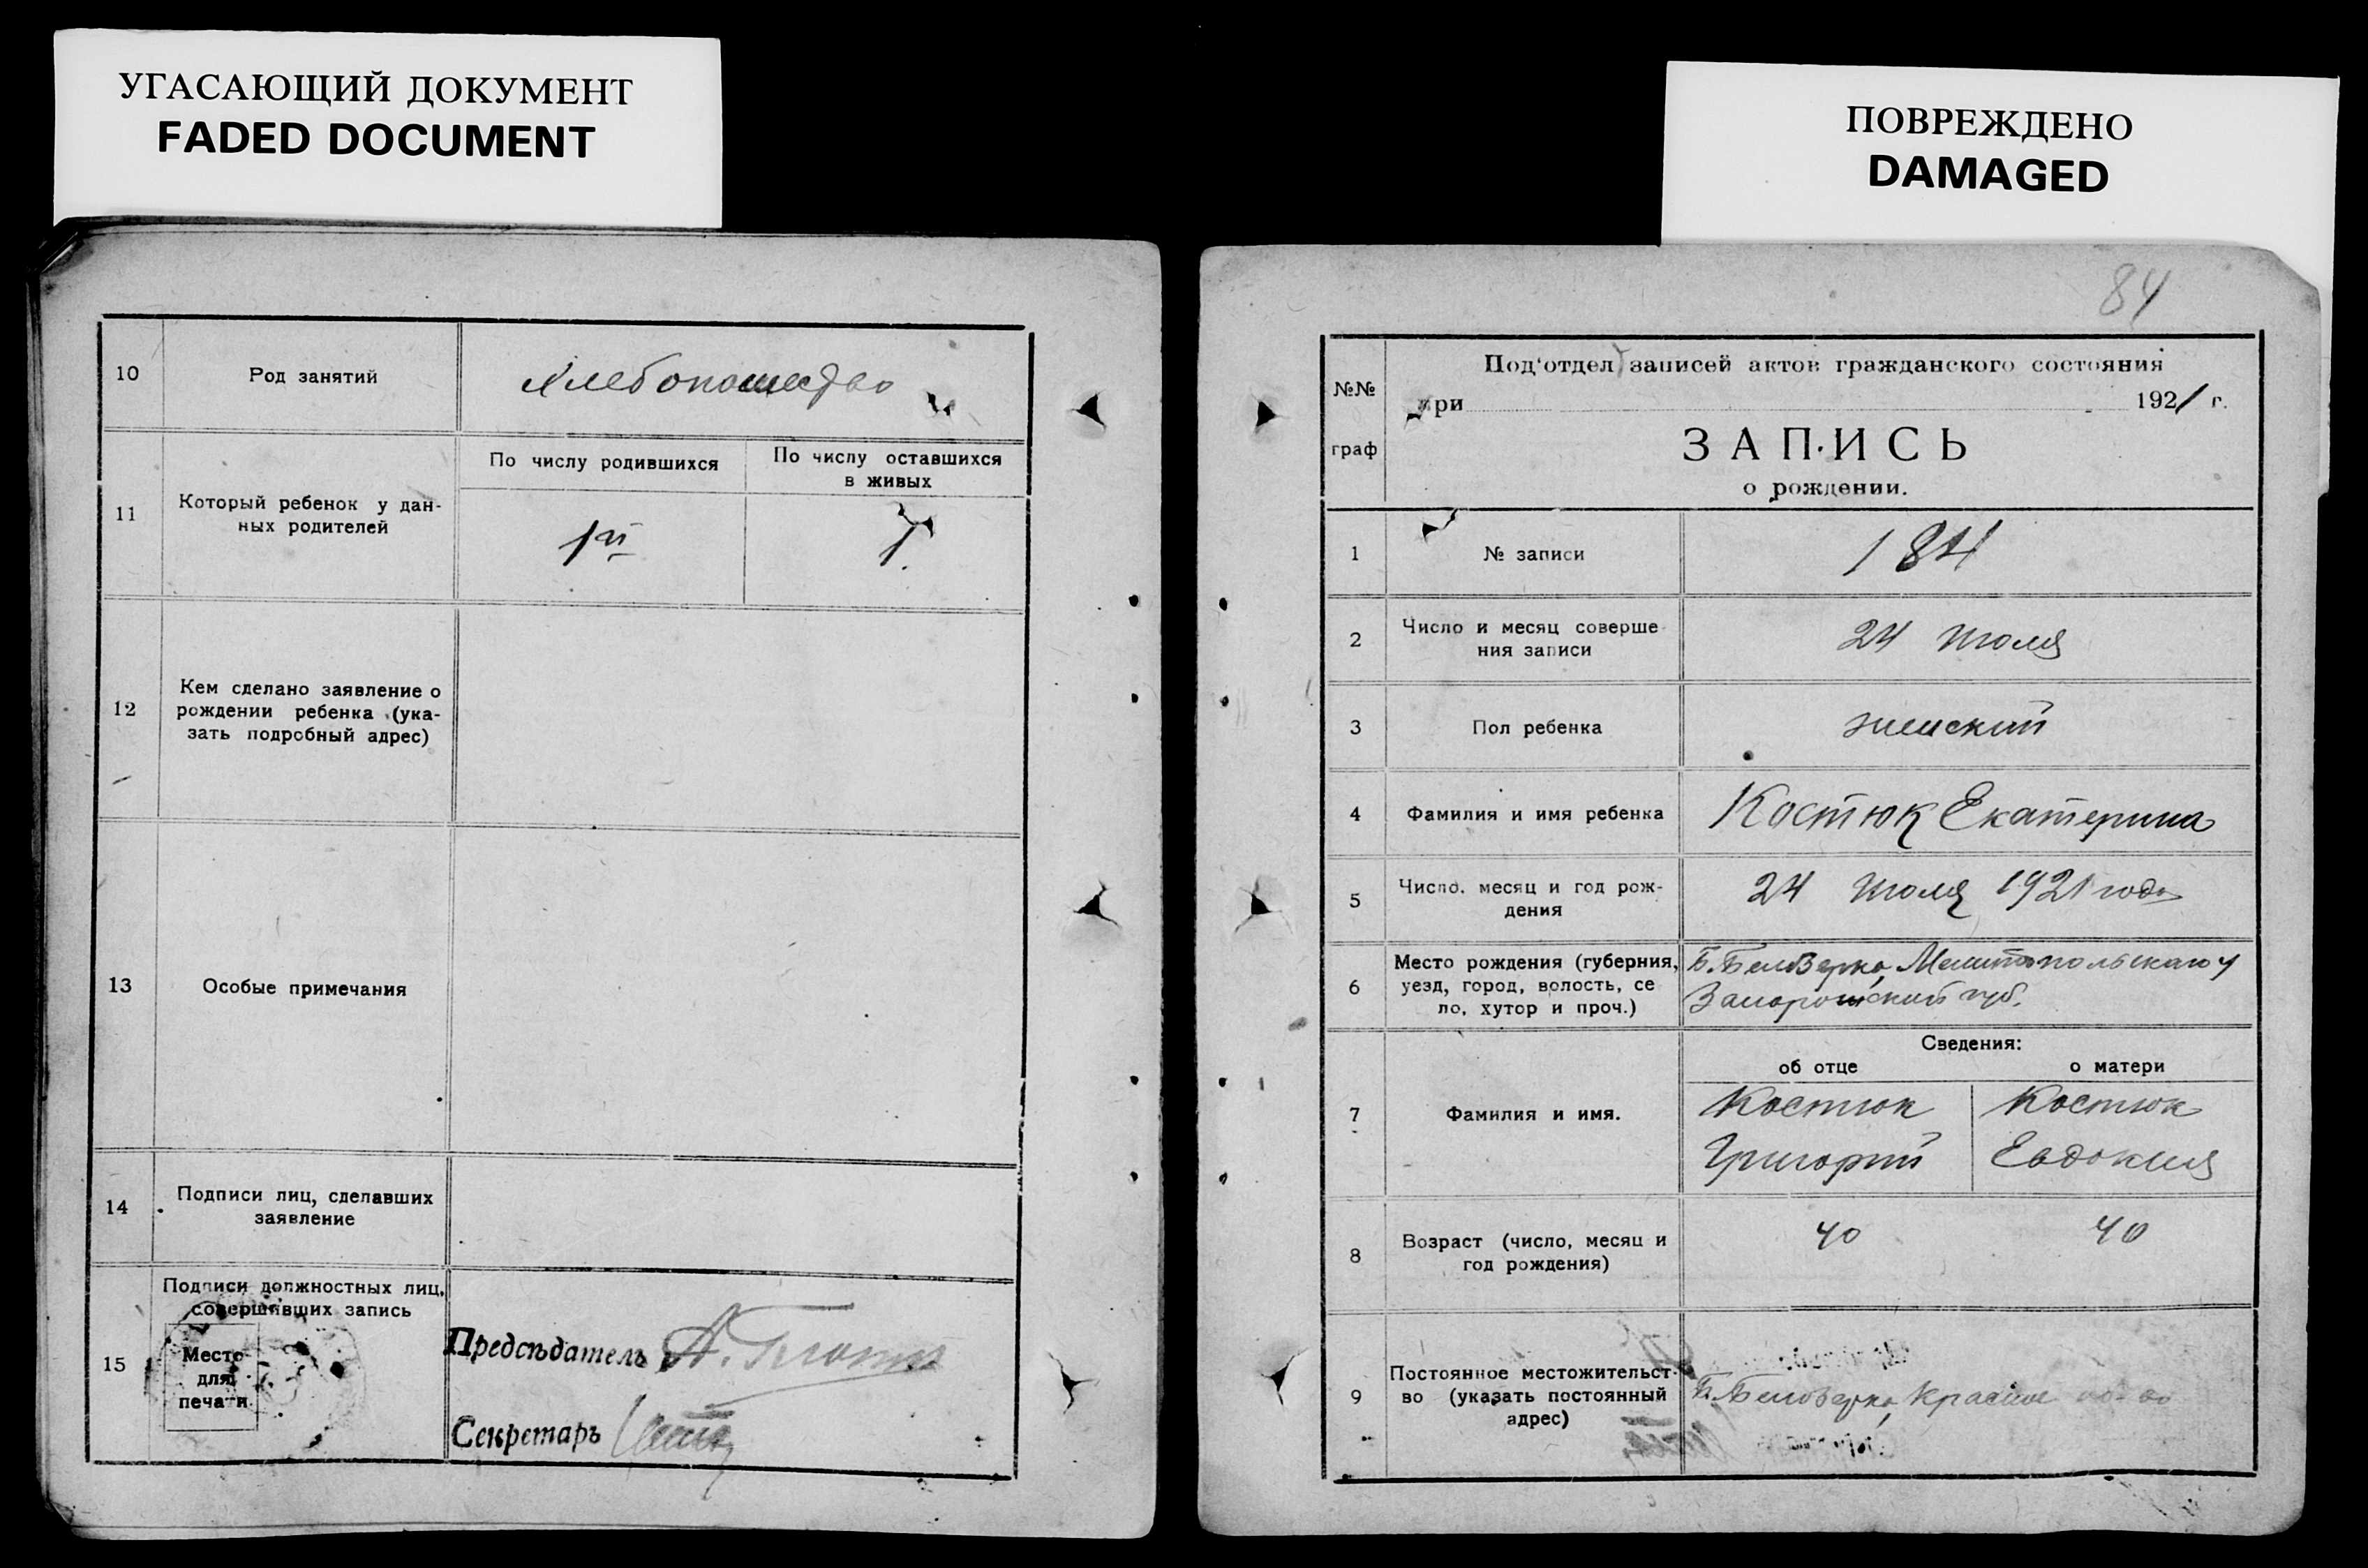 УГАСАЮЩИЙ ДОКУМЕНТ
FADED DOCUMENT
ПОВРЕЖДЕНО
DAMAGED
10
Род занятий
Хлебопашество
11
Который ребенок у дан-
ных родителей
По числу родившихся
По числу оставшихся
в живых
1й
12
Кем сделано заявление о
рождении ребенка (ука-
зать подробный адрес)
13
Особые примечания
14
Подписи лиц, сделавших
заявление
15
Подписи должностных лиц,
совершивших запись
Место
для
печати
Предсѣдатель А.
Секретарь
84
№№
граф
Под'отдел записей актов гражданского состояния
при 1921 г.
ЗАПИСЬ
о рождении.
1
№ записи
184
2
Число и месяц соверше
ния записи
24 Июля
3
Пол ребенка
женский
4
Фамилия и имя ребенка
Костюк Екатерина
5
Число. месяц и год рож-
дения
24 Июля 1921 года
6
Место рождения (губерния,
уезд, город, волость, се
ло, хутор и проч.)
Б. Белозерка, Мелитопольскаго у
Запорожской губ.
Сведения:
об отце
о матери
7
Фамилия и имя.
Костюк
Григорий
Костюк
Евдокия
8
Возраст (число, месяц и
год рождения)
40
40
9
Постоянное местожительст-
во (указать постоянный
адрес)
Б. Белозерка,